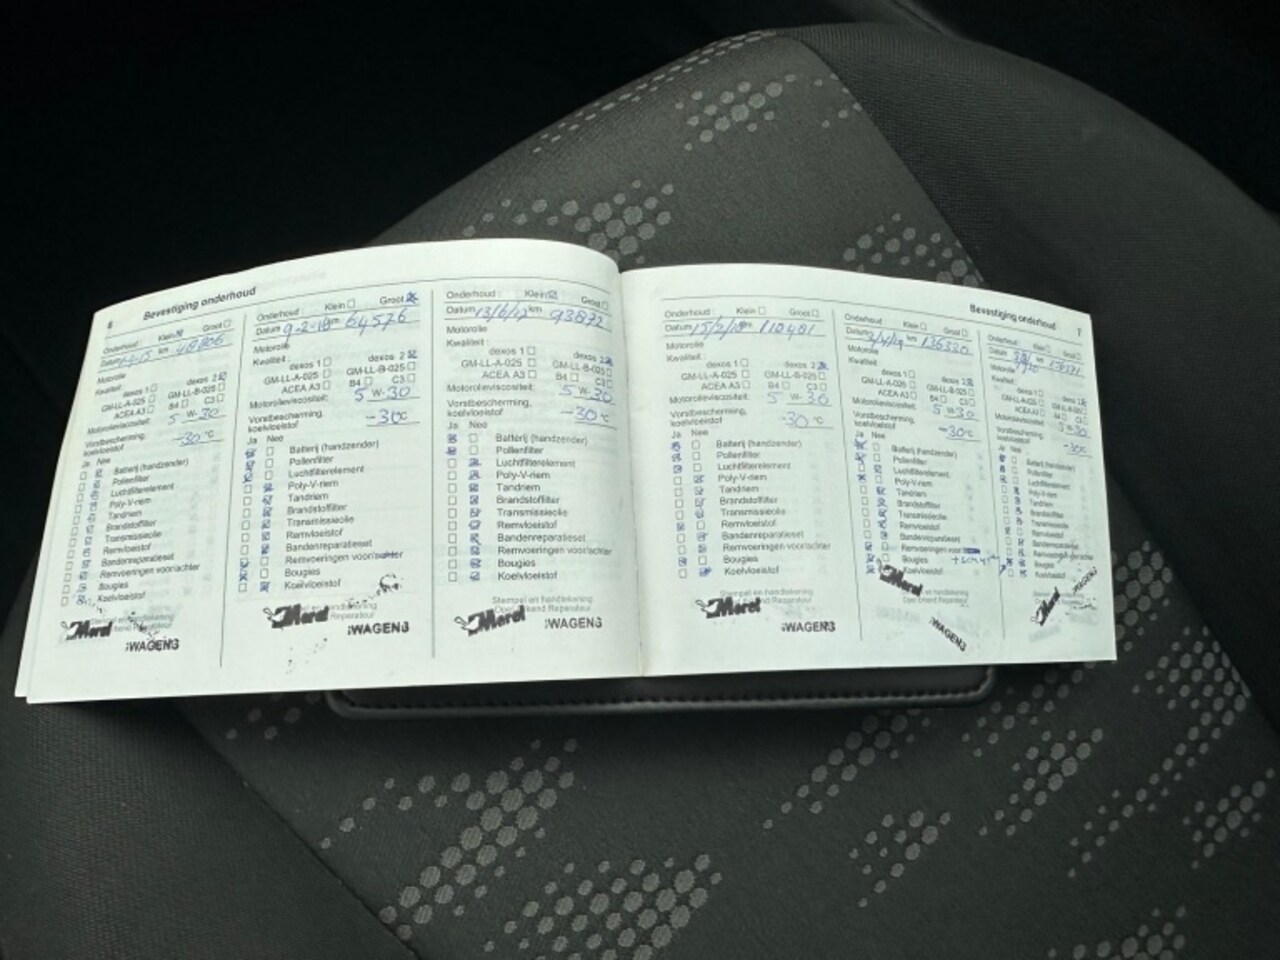 6 Bevestiging onderhoud
Onderhoud : Klein Groot
Datum km 48806
Motorolie
Kwaliteit : dexos 1 dexos 2
GM-LL-A-025 GM-LL-B-025
ACEA A3 B4 C3
Motorolieviscositeit: 5 W-30
Vorstbescherming,
koelvloeistof -30 °C
Ja Nee
Batterij (handzender)
Pollenfilter
Luchtfilterelement
Poly-V-riem
Tandriem
Brandstoffilter
Transmissieolie
Remvloeistof
Bandenreparatieset
Remvoeringen voor/achter
Bougies
Koelvloeistof
Morel
WAGENS
Onderhoud : Klein Groot
Datum 9-2-16 km 64576
Motorolie
Kwaliteit : dexos 1 dexos 2
GM-LL-A-025 GM-LL-B-025
ACEA A3 B4 C3
Motorolieviscositeit: 5 W-30
Vorstbescherming,
koelvloeistof -30 °C
Ja Nee
Batterij (handzender)
Pollenfilter
Luchtfilterelement
Poly-V-riem
Tandriem
Brandstoffilter
Transmissieolie
Remvloeistof
Bandenreparatieset
Remvoeringen voor/achter
Bougies
Koelvloeistof
Stempel en handtekening
Morel
WAGENS
Onderhoud : Klein Groot
Datum 13/6/17 km 93872
Motorolie
Kwaliteit : dexos 1 dexos 2
GM-LL-A-025 GM-LL-B-025
ACEA A3 B4 C3
Motorolieviscositeit: 5 W-30
Vorstbescherming,
koelvloeistof -30 °C
Ja Nee
Batterij (handzender)
Pollenfilter
Luchtfilterelement
Poly-V-riem
Tandriem
Brandstoffilter
Transmissieolie
Remvloeistof
Bandenreparatieset
Remvoeringen voor/achter
Bougies
Koelvloeistof
Stempel en handtekening
Opel Erkend Reparateur
Morel
WAGENS
Bevestiging onderhoud 7
Onderhoud : Klein Groot
Datum 15/2/18 km 110481
Motorolie
Kwaliteit : dexos 1 dexos 2
GM-LL-A-025 GM-LL-B-025
ACEA A3 B4 C3
Motorolieviscositeit: 5 W-30
Vorstbescherming,
koelvloeistof -30 °C
Ja Nee
Batterij (handzender)
Pollenfilter
Luchtfilterelement
Poly-V-riem
Tandriem
Brandstoffilter
Transmissieolie
Remvloeistof
Bandenreparatieset
Remvoeringen voor/achter
Bougies
Koelvloeistof
Stempel en handtekening
Opel Erkend Reparateur
Morel
WAGENS
Onderhoud : Klein Groot
Datum 3/4/19 km 135330
Motorolie
Kwaliteit : dexos 1 dexos 2
GM-LL-A-025 GM-LL-B-025
ACEA A3 B4 C3
Motorolieviscositeit: 5 W-30
Vorstbescherming,
koelvloeistof -30 °C
Ja Nee
Batterij (handzender)
Pollenfilter
Luchtfilterelement
Poly-V-riem
Tandriem
Brandstoffilter
Transmissieolie
Remvloeistof
Bandenreparatieset
Remvoeringen voor
Bougies
Koelvloeistof
Stempel en handtekening
Opel Erkend Reparateur
Morel
WAGENS
Onderhoud : Klein Groot
Datum km
Motorolie
Kwaliteit : dexos 1 dexos 2
GM-LL-A-025 GM-LL-B-025
ACEA A3 B4 C3
Motorolieviscositeit: 5 W-30
Vorstbescherming,
koelvloeistof -30 °C
Ja Nee
Batterij (handzender)
Pollenfilter
Luchtfilterelement
Poly-V-riem
Tandriem
Brandstoffilter
Transmissieolie
Remvloeistof
Bandenreparatieset
Remvoeringen voor/achter
Bougies
Koelvloeistof
Morel
WAGENS